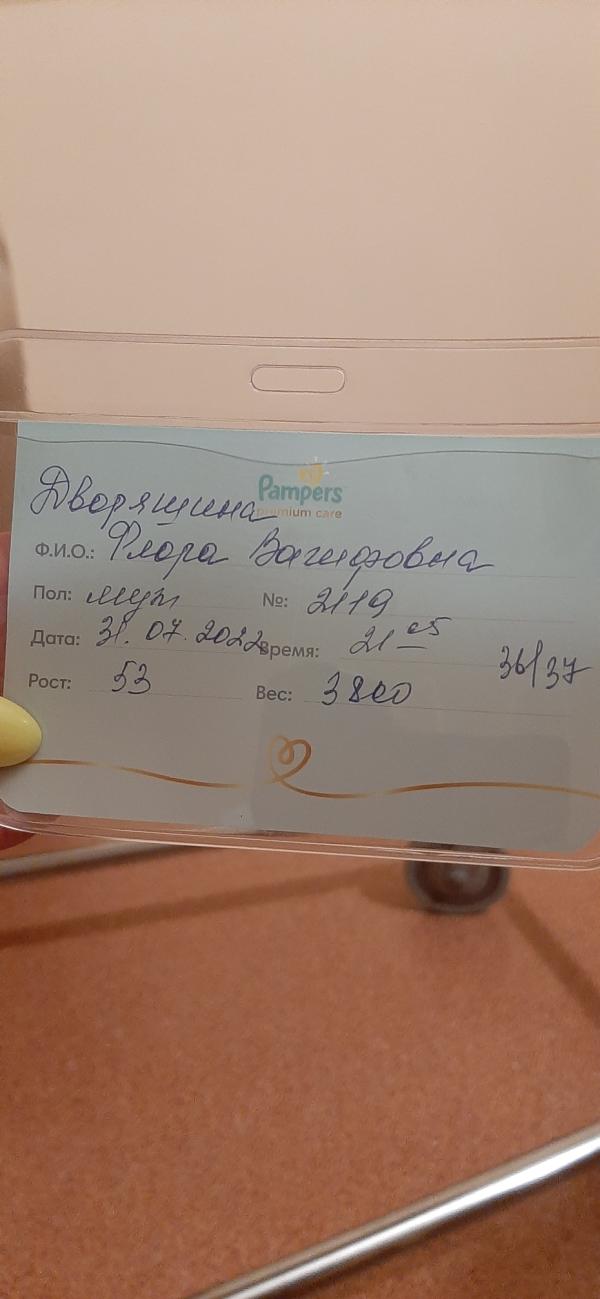 Pampers
premium care
Дворящина
Ф.И.О.: Флора Вагифовна
Пол: муж №: 2119
Дата: 31.07.2022 Время: 21 05
36/37
Рост: 53 Вес: 3800